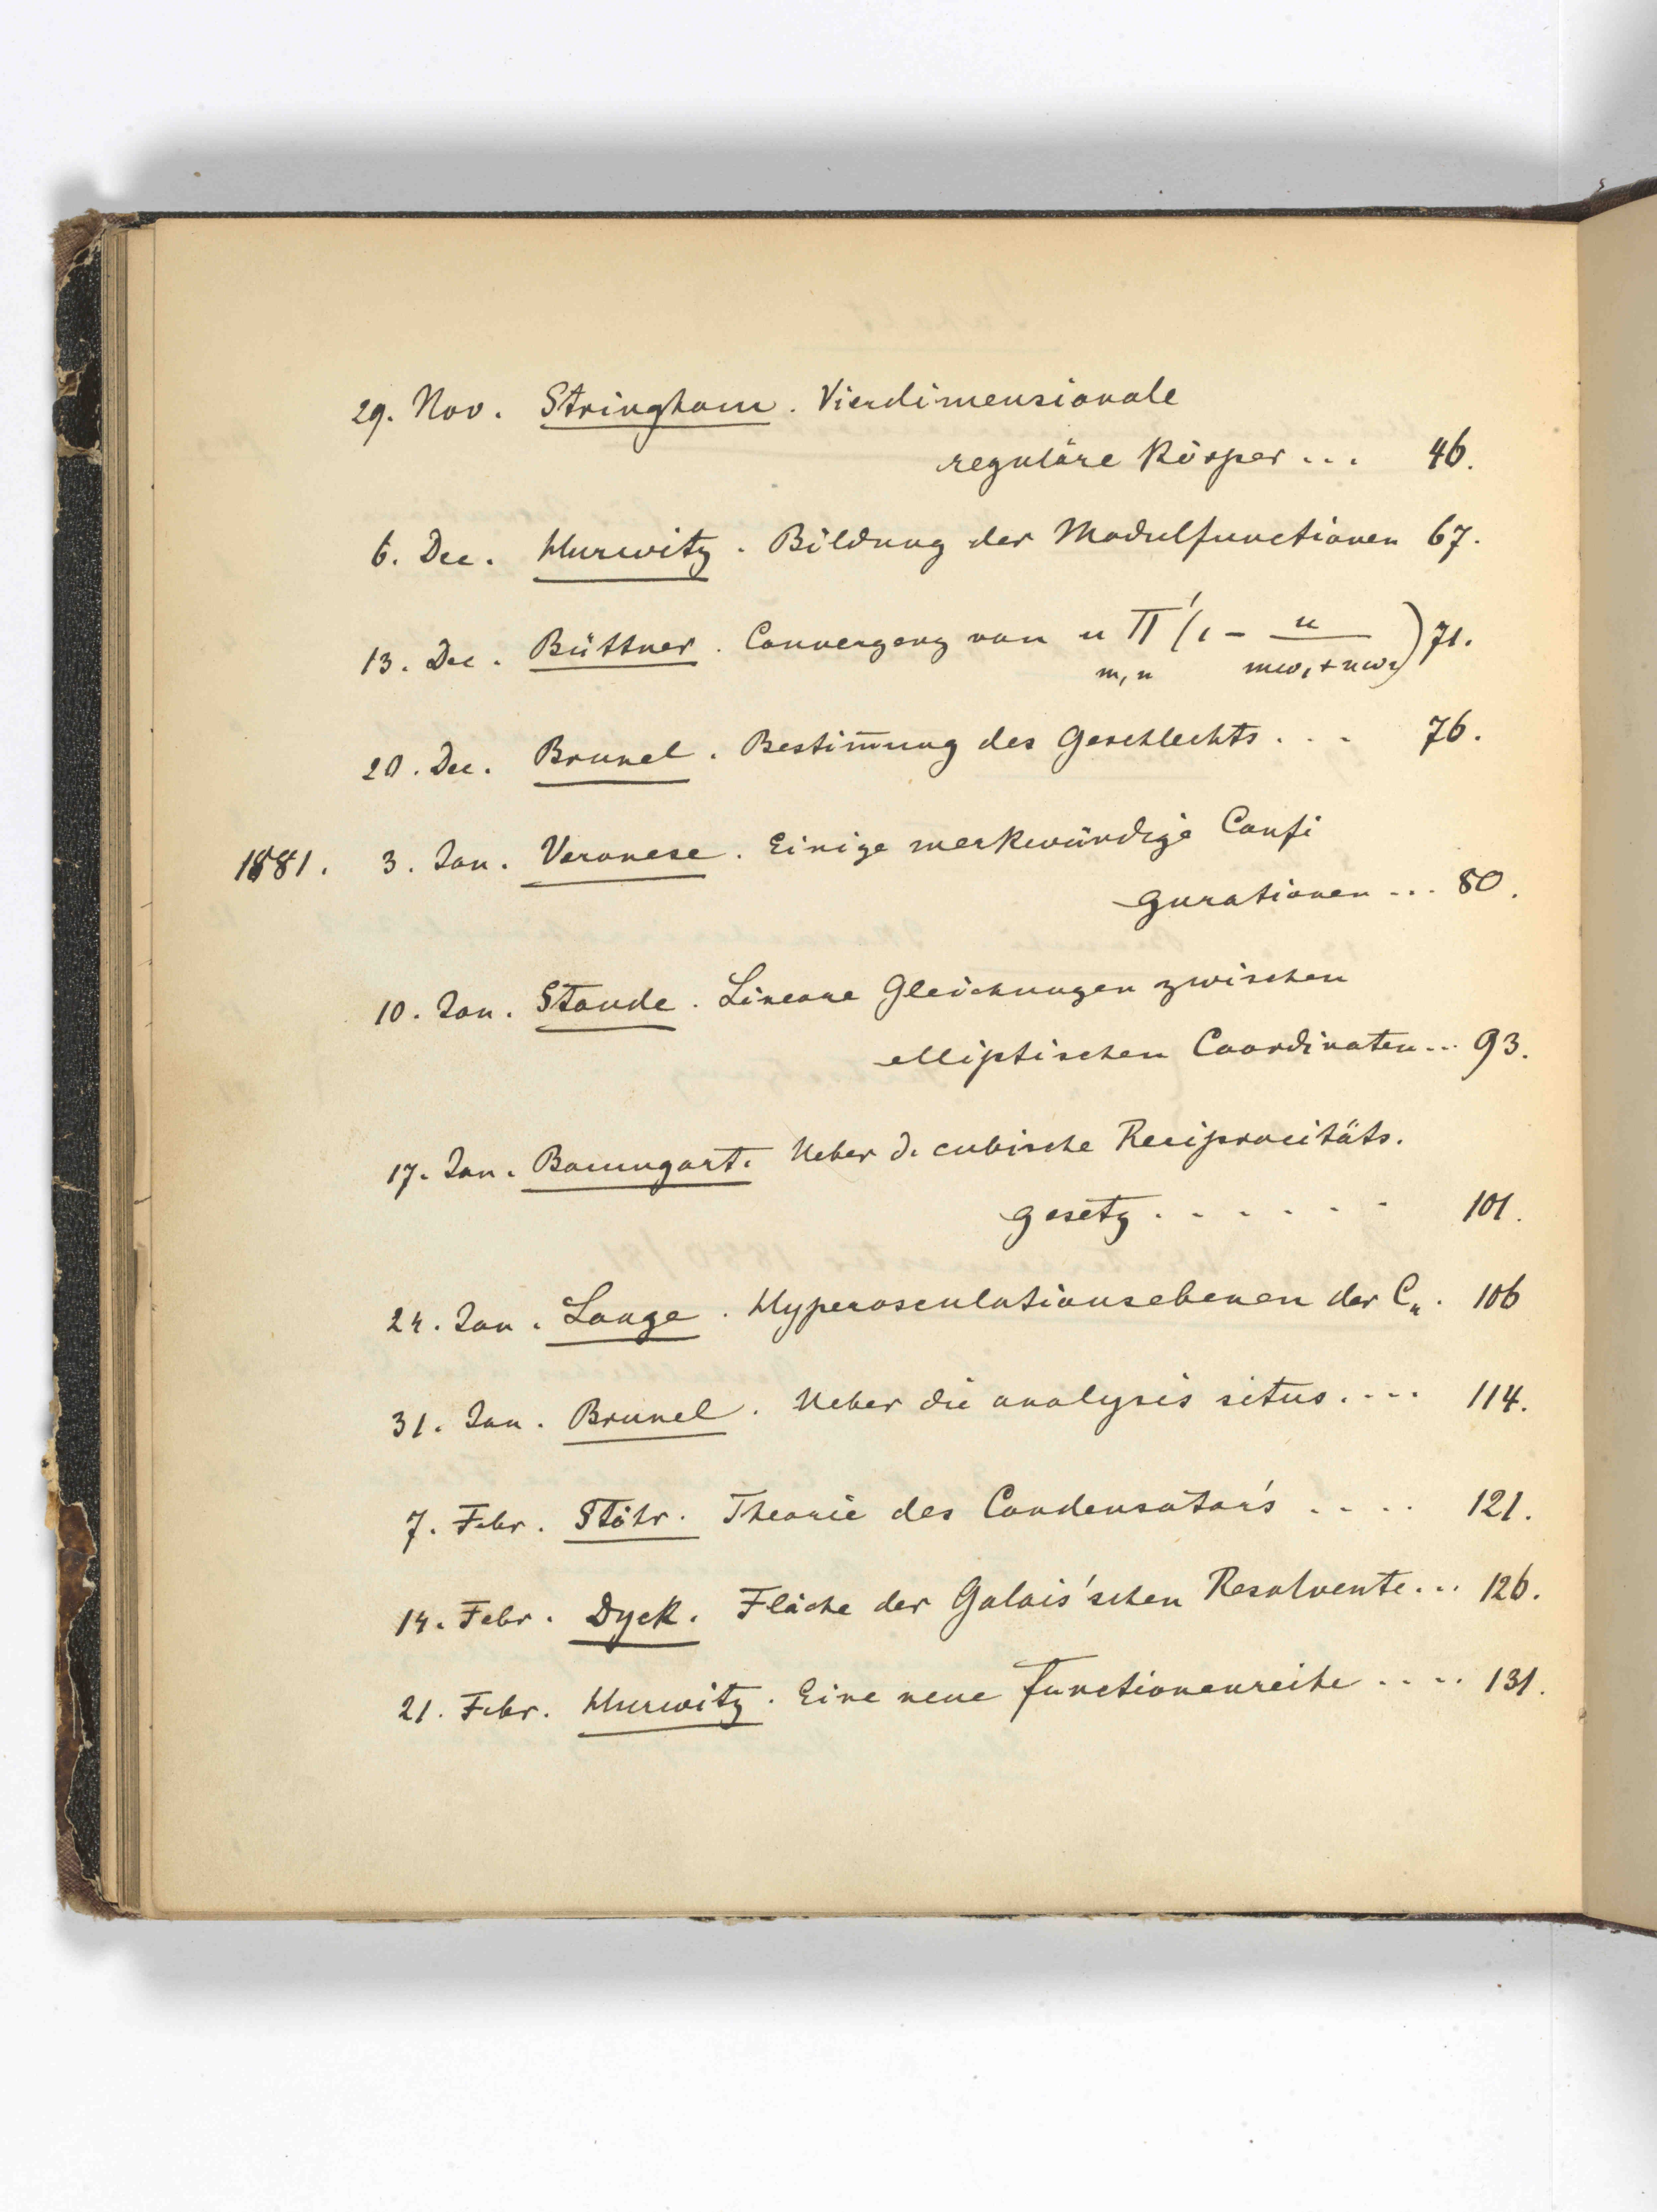 29. Nov. Stringham. Vierdimensionale
reguläre Körper ... 46.
6. Dec. Hurwitz. Bildung der Modulfunctionen 67.
13. Dec. Büttner. Convergenz von u Π' (1 - u / mω₁ + nω₂) 71.
m, n
20. Dec. Brunel. Bestim̅ung des Geschlechts . . . 76.
1881. 3. Jan. Veronese. Einige merkwürdige Confi
gurationen ... 80.
10. Jan. Staude. Lineare Gleichungen zwischen
elliptischen Coordinaten ... 93.
17. Jan. Baumgart. Ueber d. cubische Reciprocitäts.
gesetz . . . . . . 101.
24. Jan. Lange. Hyperosculationsebenen der Cₙ. 106
31. Jan. Brunel. Ueber die analysis situs. ... 114.
7. Febr. Stöhr. Theorie des Condensator's .... 121.
14. Febr. Dyck. Fläche der Galois'schen Resolvente... 126.
21. Febr. Hurwitz. Eine neue Functionenreihe .... 131.